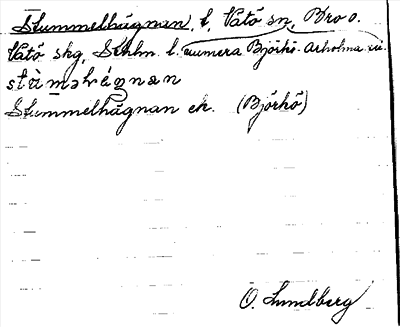 Stummelhägnan, t, Vätö sn, Bro o.
Vätö skg, Sthlm l. numera Björkö-Arholma
Stummelhägnan ek. (Björkö)
O. Lundberg